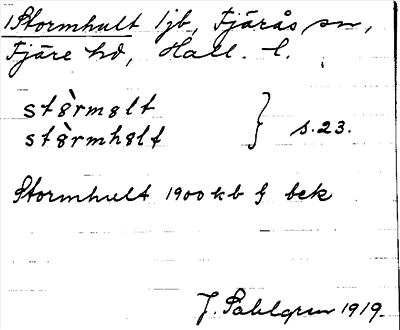 1 Stormhult 1jb, Fjärås sn,
Fjäre hd, Hall. l.
stòrmølt
stòrmhølt } s. 23.
Stormhult 1900 kb § bek
J. Sahlgren 1919.